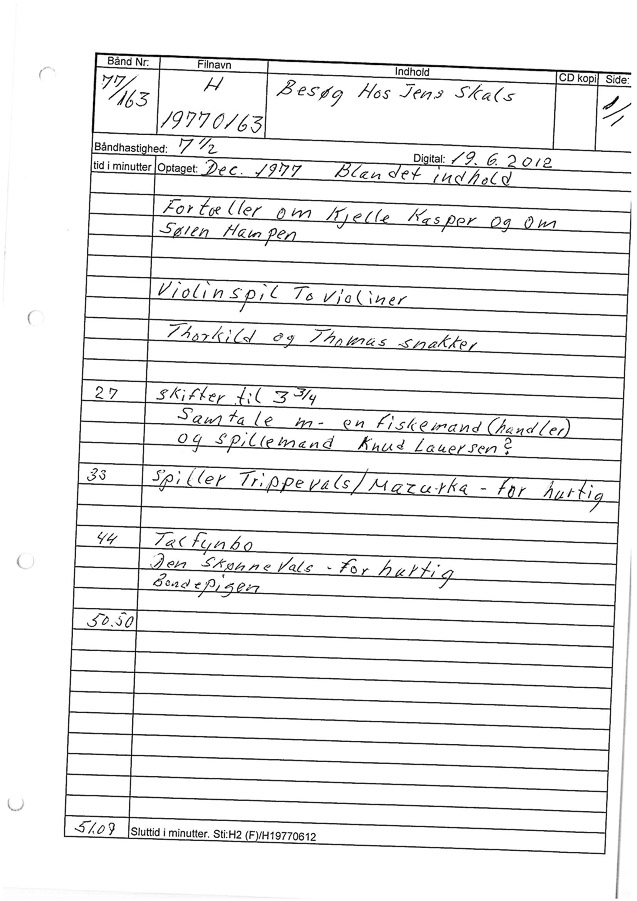 Bånd Nr: Filnavn Indhold CD kopi Side:
77/163 H Besøg Hos Jens Skals 1/1
19770163
Båndhastighed: 7 1/2 Digital: 19.6.2012
tid i minutter Optaget: Dec. 1977 Blandet indhold
Fortæller om Kjelle Kasper og om
Søren Hampen
Violinspil To Violiner
Thorkild og Thomas snakker
27 skifter til 3 3/4
Samtale m- en fiskemand (handler)
og spillemand Knud Lauersen?
33 Spiller Trippevals/Mazurka - for hurtig
44 Tal Fynbo
Den skønne Vals - for hurtig
Bondepigen
50.50
51.09 Sluttid i minutter. Sti:H2 (F)/H19770612